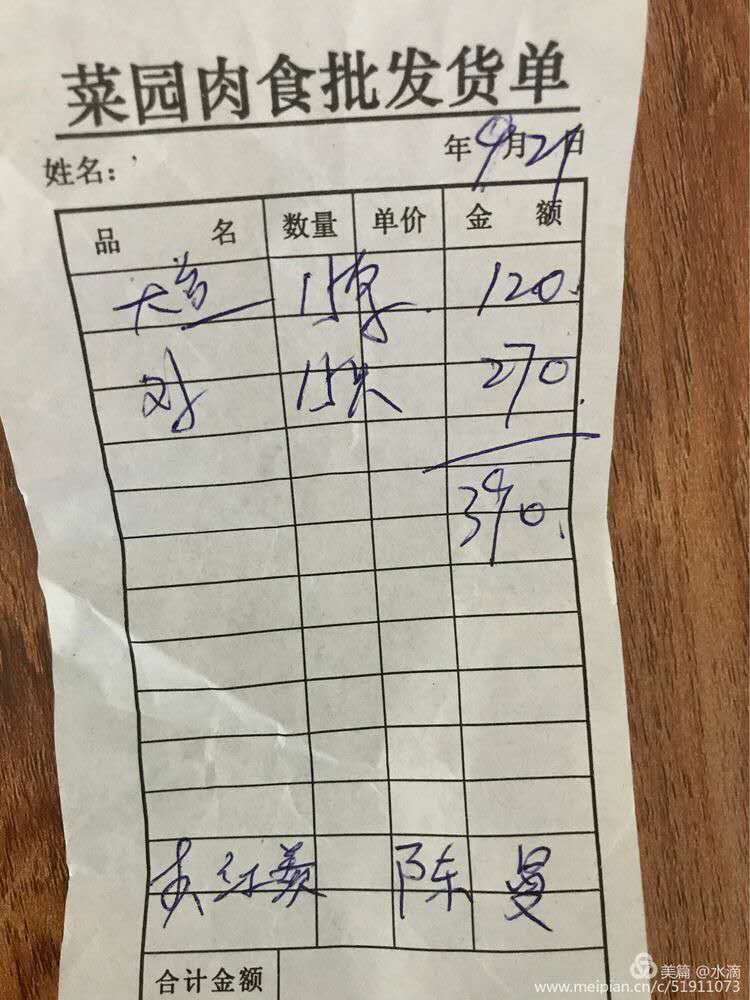 菜园肉食批发货单
姓名： 年9月21日
品名 数量 单价 金额
大 15 120.
15 270.
390.
陈曼
合计金额
美篇 @水滴
www.meipian.cn/c/51911073